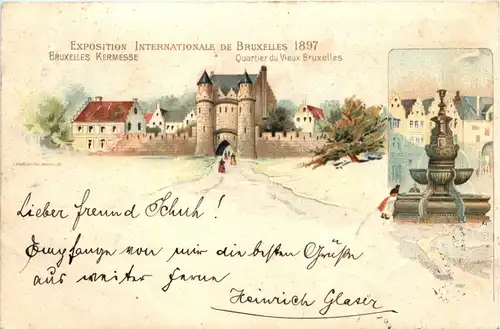 EXPOSITION INTERNATIONALE DE BRUXELLES 1897
BRUXELLES KERMESSE
Quartier du Vieux Bruxelles
Lieber freund Schuh!
Empfange von mir die besten Grüße
aus weiter ferne
Heinrich Glaser